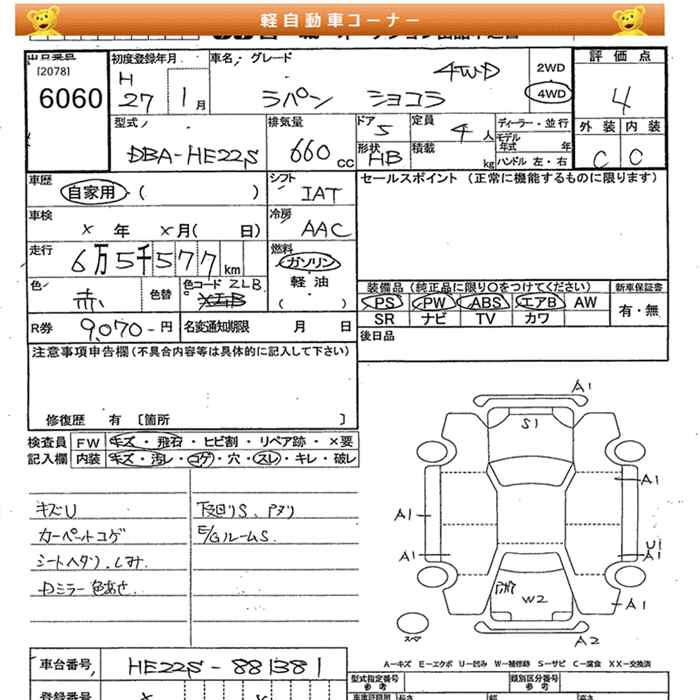 軽自動車コーナー
出品番号 初度登録年月 車名・グレード 2WD 評価点
(2078) H 4WD
6060 27 1月 ラパン ショコラ 4WD 4
型式 排気量 ドア 5 定員 4人 ディーラー・並行 外装 内装
DBA-HE22S 660cc 形状 HB 積載 kg モデル年式 年 C C
ハンドル 左・右
車歴 シフト セールスポイント (正常に機能するものに限ります)
自家用 ( ) IAT
車検 冷房
× 年 ×月( 日) AAC
走行 燃料
6万5千577km ガソリン
色 色替 色コード ZLB 軽油 装備品 (純正品に限り○をつけてください) 新車保証書
赤 ( ) PS PW ABS エアB AW 有・無
R券 9,070-円 名変通知期限 月 日 SR ナビ TV カワ
注意事項申告欄(不具合内容等は具体的に記入して下さい) 後日品
修復歴 有 〔箇所 〕
検査員 FW キズ・飛石・ヒビ割・リペア跡・×要
記入欄 内装 キズ・汚レ・コゲ・穴・スレ・キレ・破レ
キズU 下廻りS、アタリ
カーペットコゲ E/GルームS
シートヘタリ、シミ
Dミラー色あせ
A1
S1
A1
A1
A1
U1
A1
W2
A1
スペア
A2
A-キズ E-エクボ U-凹み W-補修跡 S-サビ C-腐食 XX-交換済
車台番号 HE22S-881381 型式指定番号 類別区分番号
参考 参考
登録番号 長さ 幅 高さ